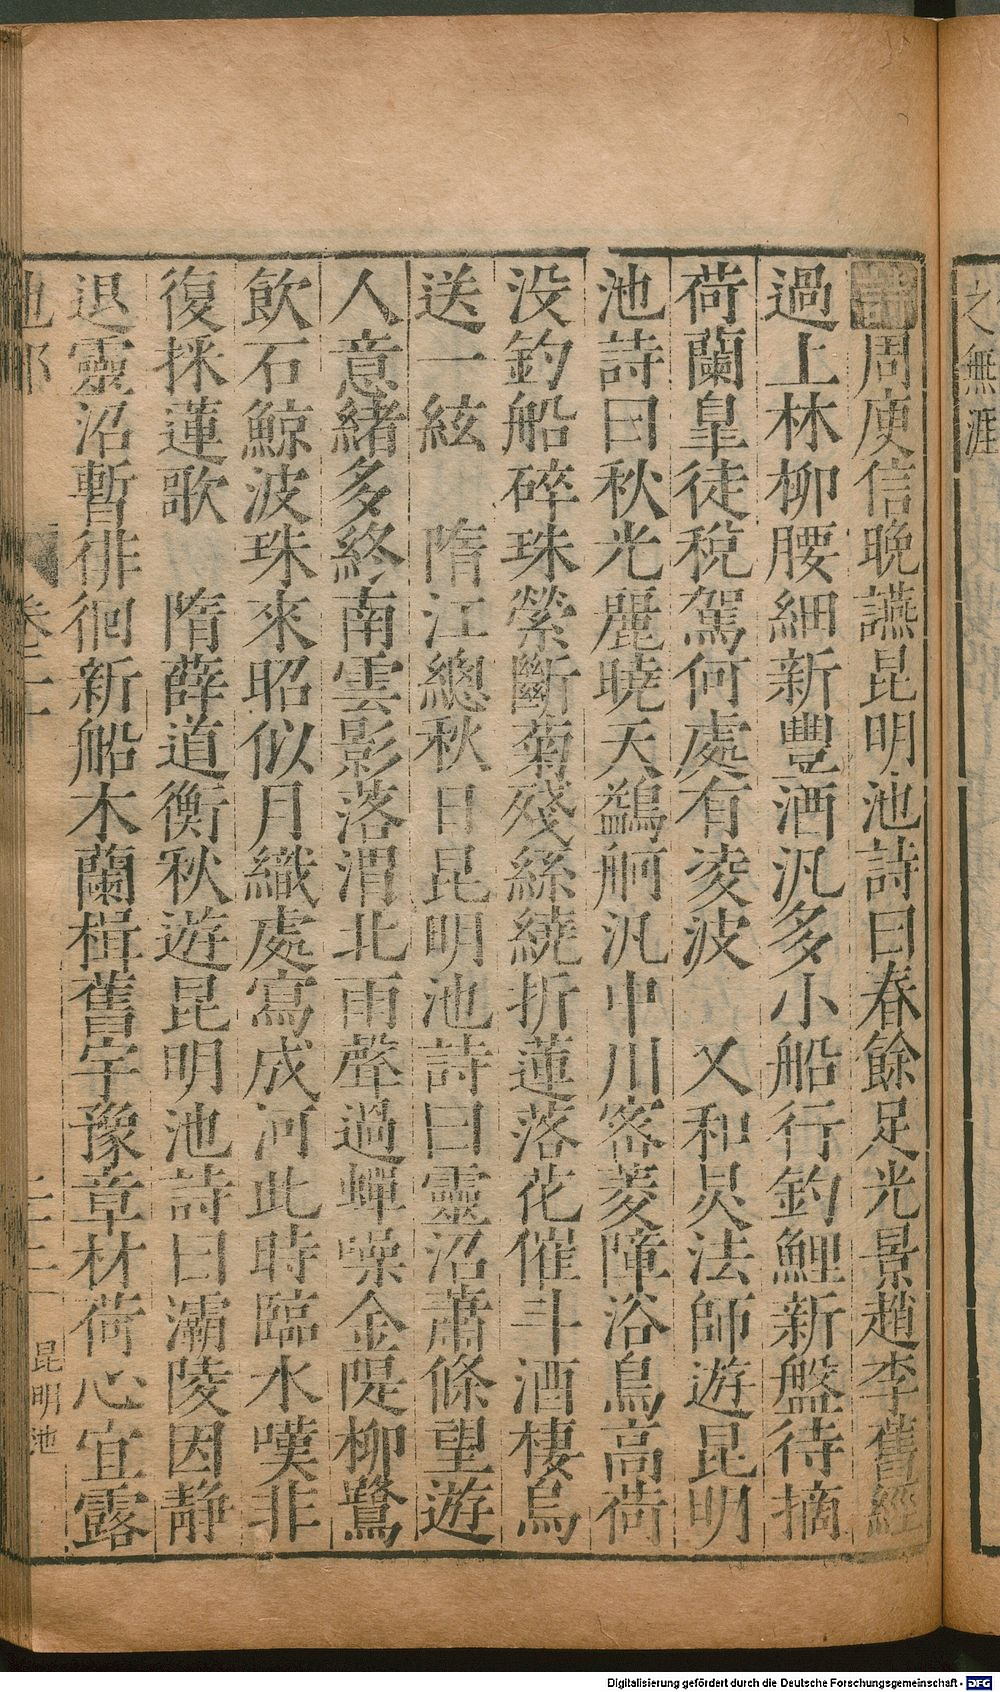 之無涯
詩周庾信晚讌昆明池詩曰春餘足光景趙李舊經
過上林柳腰細新豐酒汎多小船行釣鯉新盤待摘
荷蘭皐徒稅駕何處有淩波 又和炅法師遊昆明
池詩曰秋光麗曉天鷁舸汎中川密菱障浴鳥高荷
没釣船碎珠縈斷菊殘絲繞折蓮落花催斗酒棲烏
送一絃 隋江總秋日昆明池詩曰靈沼蕭條望遊
人意緒多終南雲影落渭北雨聲過蟬噪金隄柳鷺
飲石鯨波珠來昭似月織處寫成河此時臨水嘆非
復採蓮歌 隋薛道衡秋遊昆明池詩曰灞陵因靜
退靈沼暫徘徊新船木蘭楫舊宇豫章材荷心宜露
地部 卷二 昆明池
Digitalisierung gefördert durch die Deutsche Forschungsgemeinschaft - DFG